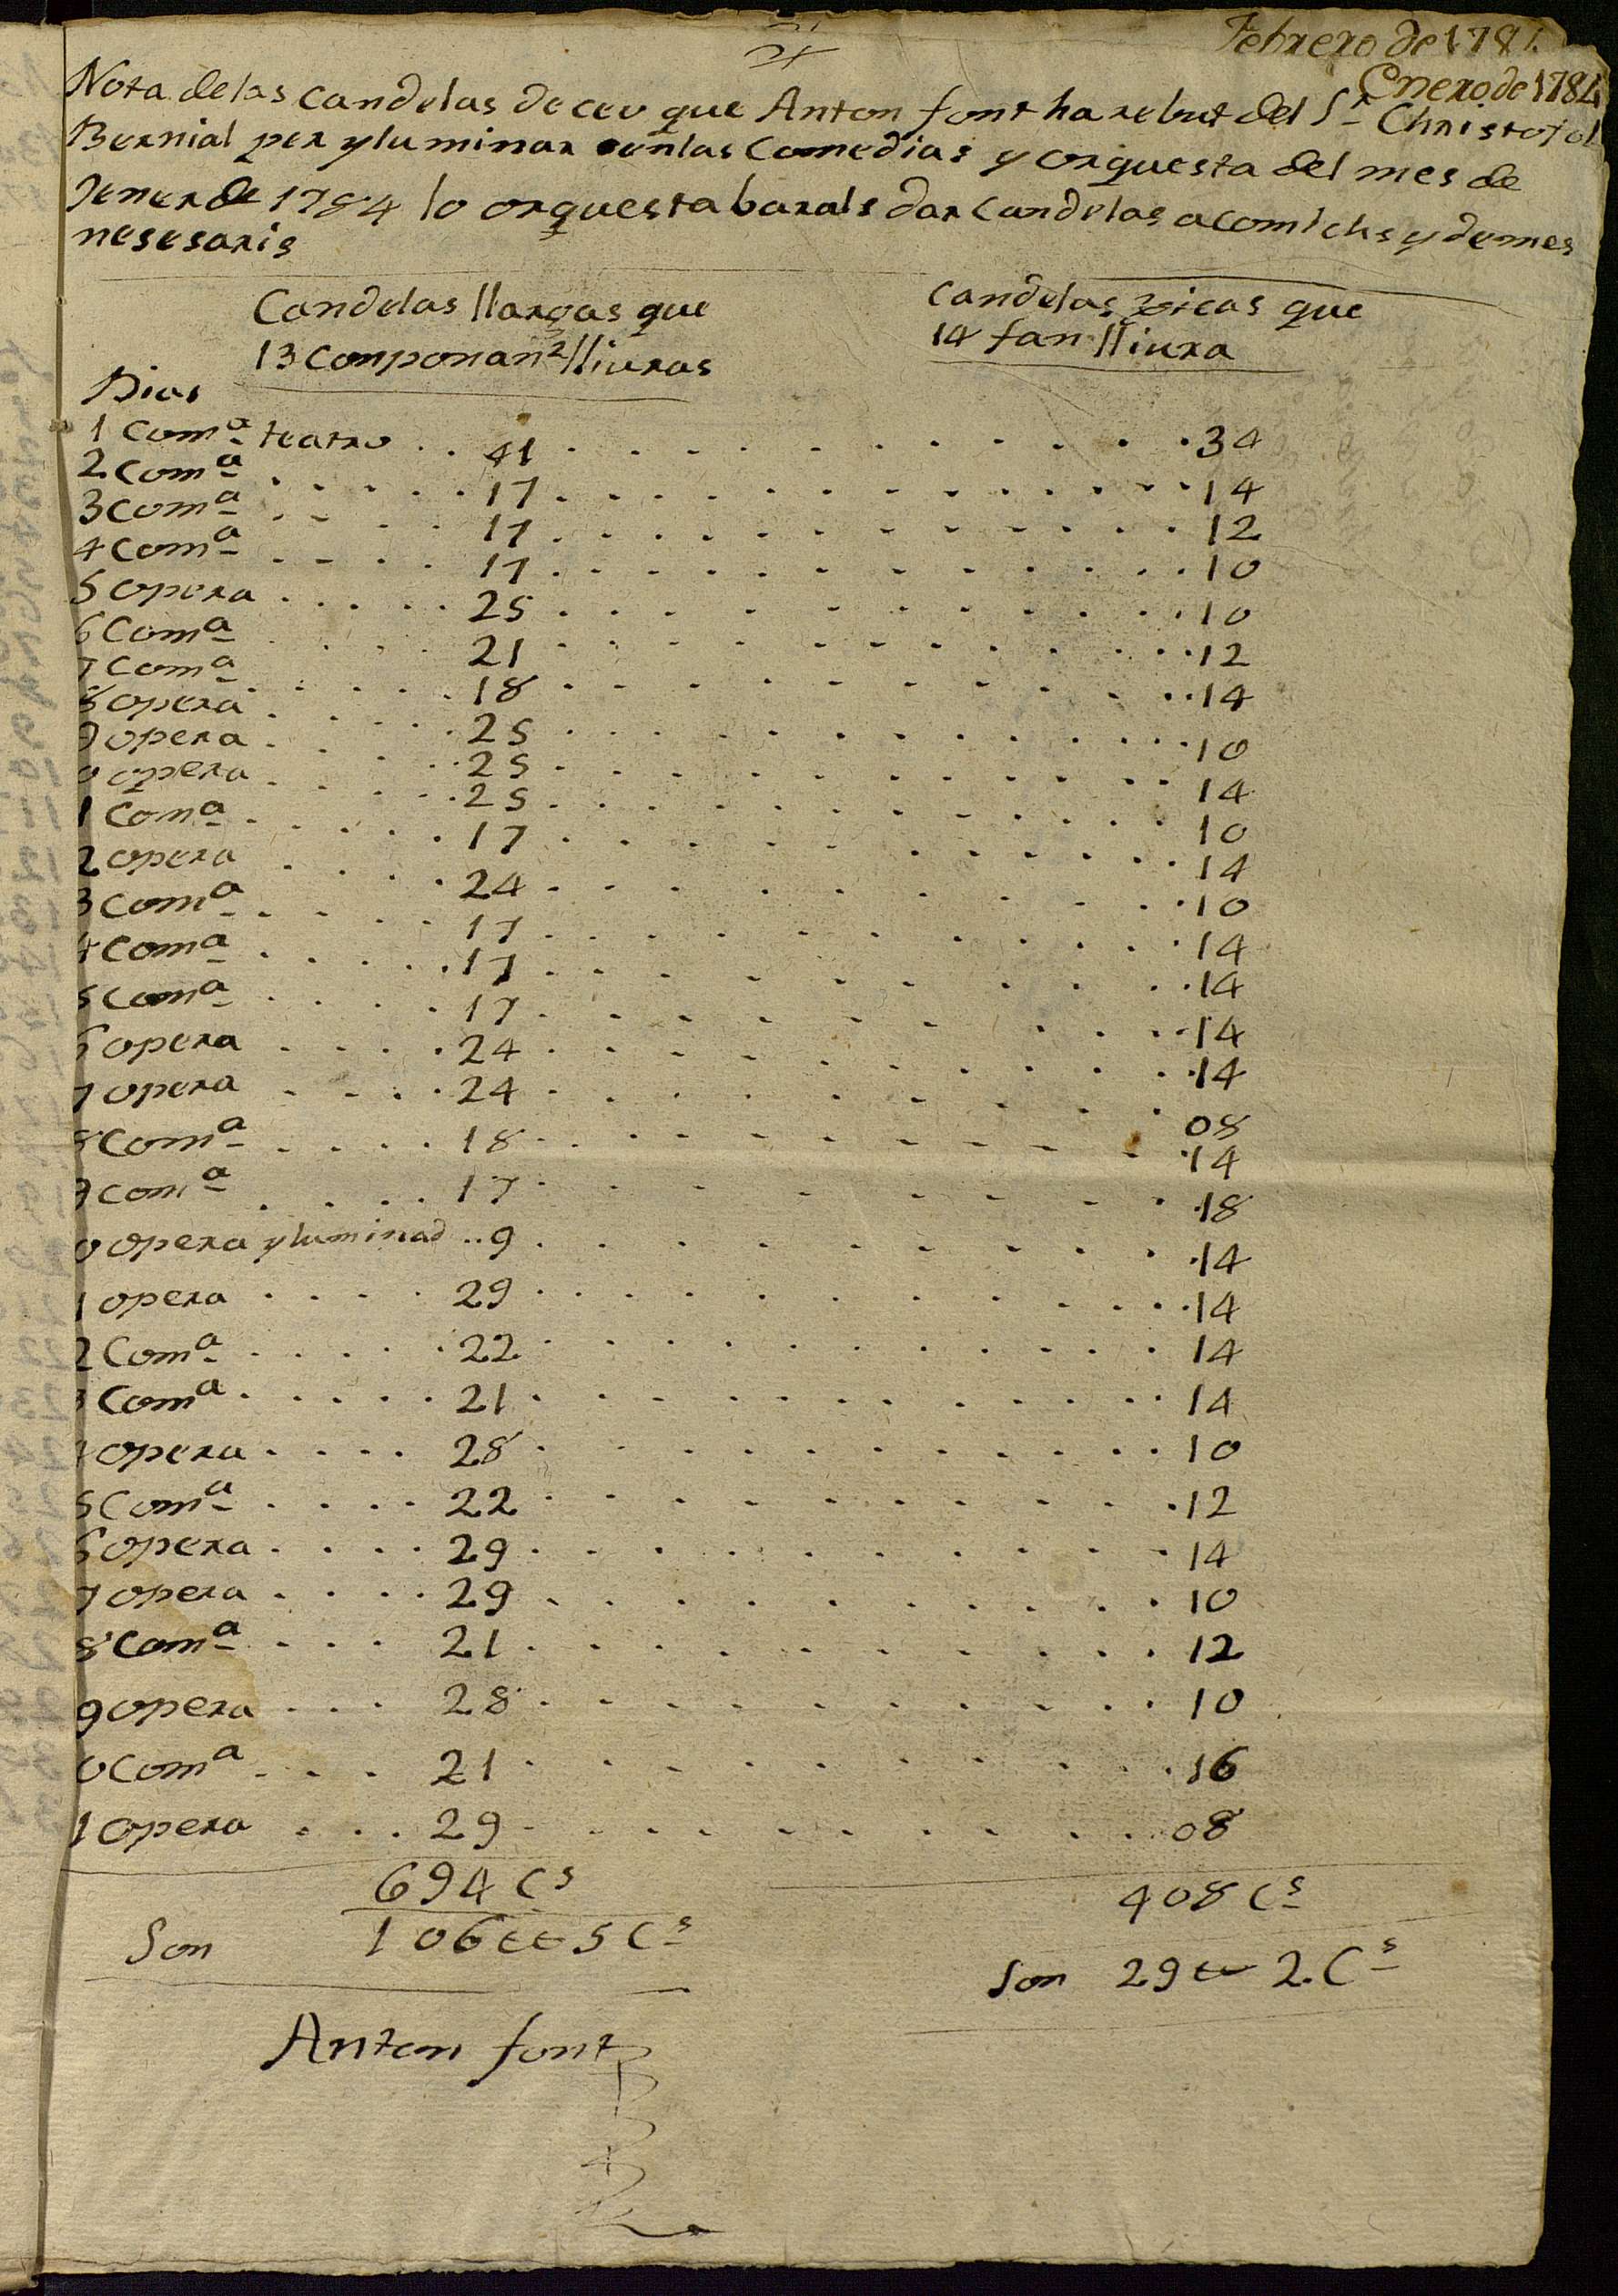 Febrero de 1781.
Enero de 1784
Nota de las Candelas de ceu que Anton font ha rebut del Sr Christofol
Bernial per yluminar en las Comedias y orquesta del mes de
Jener de 1784 lo orquesta baral s dar Candelas a comichs y demes
nesesaris
Candelas llargas que
13 Componan 2 lliuras
Candelas xicas que
14 fan lliura
Dias
1 Coma teatro . . 41 . . . 34
2 Coma . . . 17 . . . 14
3 Coma . . . 17 . . . 12
4 Coma . . . 17 . . . 10
5 opera . . . 25 . . . 10
6 Coma . . . 21 . . . 12
7 Coma . . . 18 . . . 14
8 opera . . . 25 . . . 10
9 opera . . . 25 . . . 14
0 opera . . . 25 . . . 10
1 Coma . . . 17 . . . 14
2 opera . . . 24 . . . 10
3 Coma . . . 17 . . . 14
4 Coma . . . 17 . . . 14
5 Coma . . . 17 . . . 14
6 opera . . . 24 . . . 14
7 opera . . . 24 . . . 08
8 Coma . . . 18 . . . 14
9 Coma . . . 17 . . . 18
0 opera yluminad . . 9 . . . 14
1 opera . . . 29 . . . 14
2 Coma . . . 22 . . . 14
3 Coma . . . 21 . . . 14
4 opera . . . 28 . . . 10
5 Coma . . . 22 . . . 12
6 opera . . . 29 . . . 14
7 opera . . . 29 . . . 10
8 Coma . . . 21 . . . 12
9 opera . . . 28 . . . 10
0 Coma . . . 21 . . . 16
1 opera . . . 29 . . . 08
694 Cs
408 Cs
Son 106 ll 5 Cs
Son 29 ll 2. Cs
Anton font